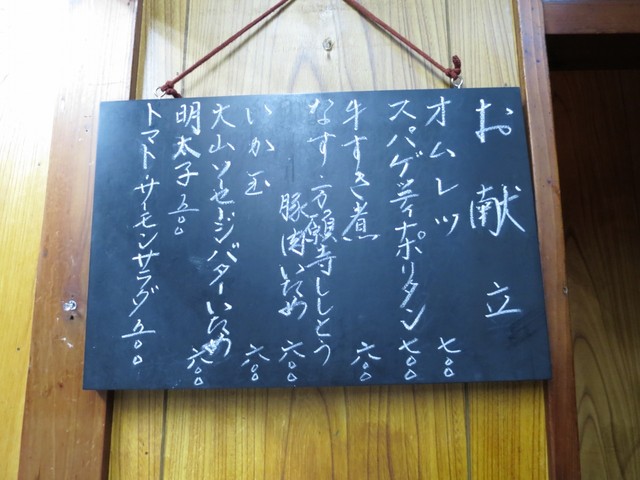 お献立
オムレツ 七〇〇
スパゲッティナポリタン 七〇〇
牛すき煮 六〇〇
なす・万願寺ししとう
豚肉いため 六〇〇
いか玉 六〇〇
大山ソーセージバターいため 六〇〇
明太子 五五〇
トマト・サーモンサラダ 五〇〇